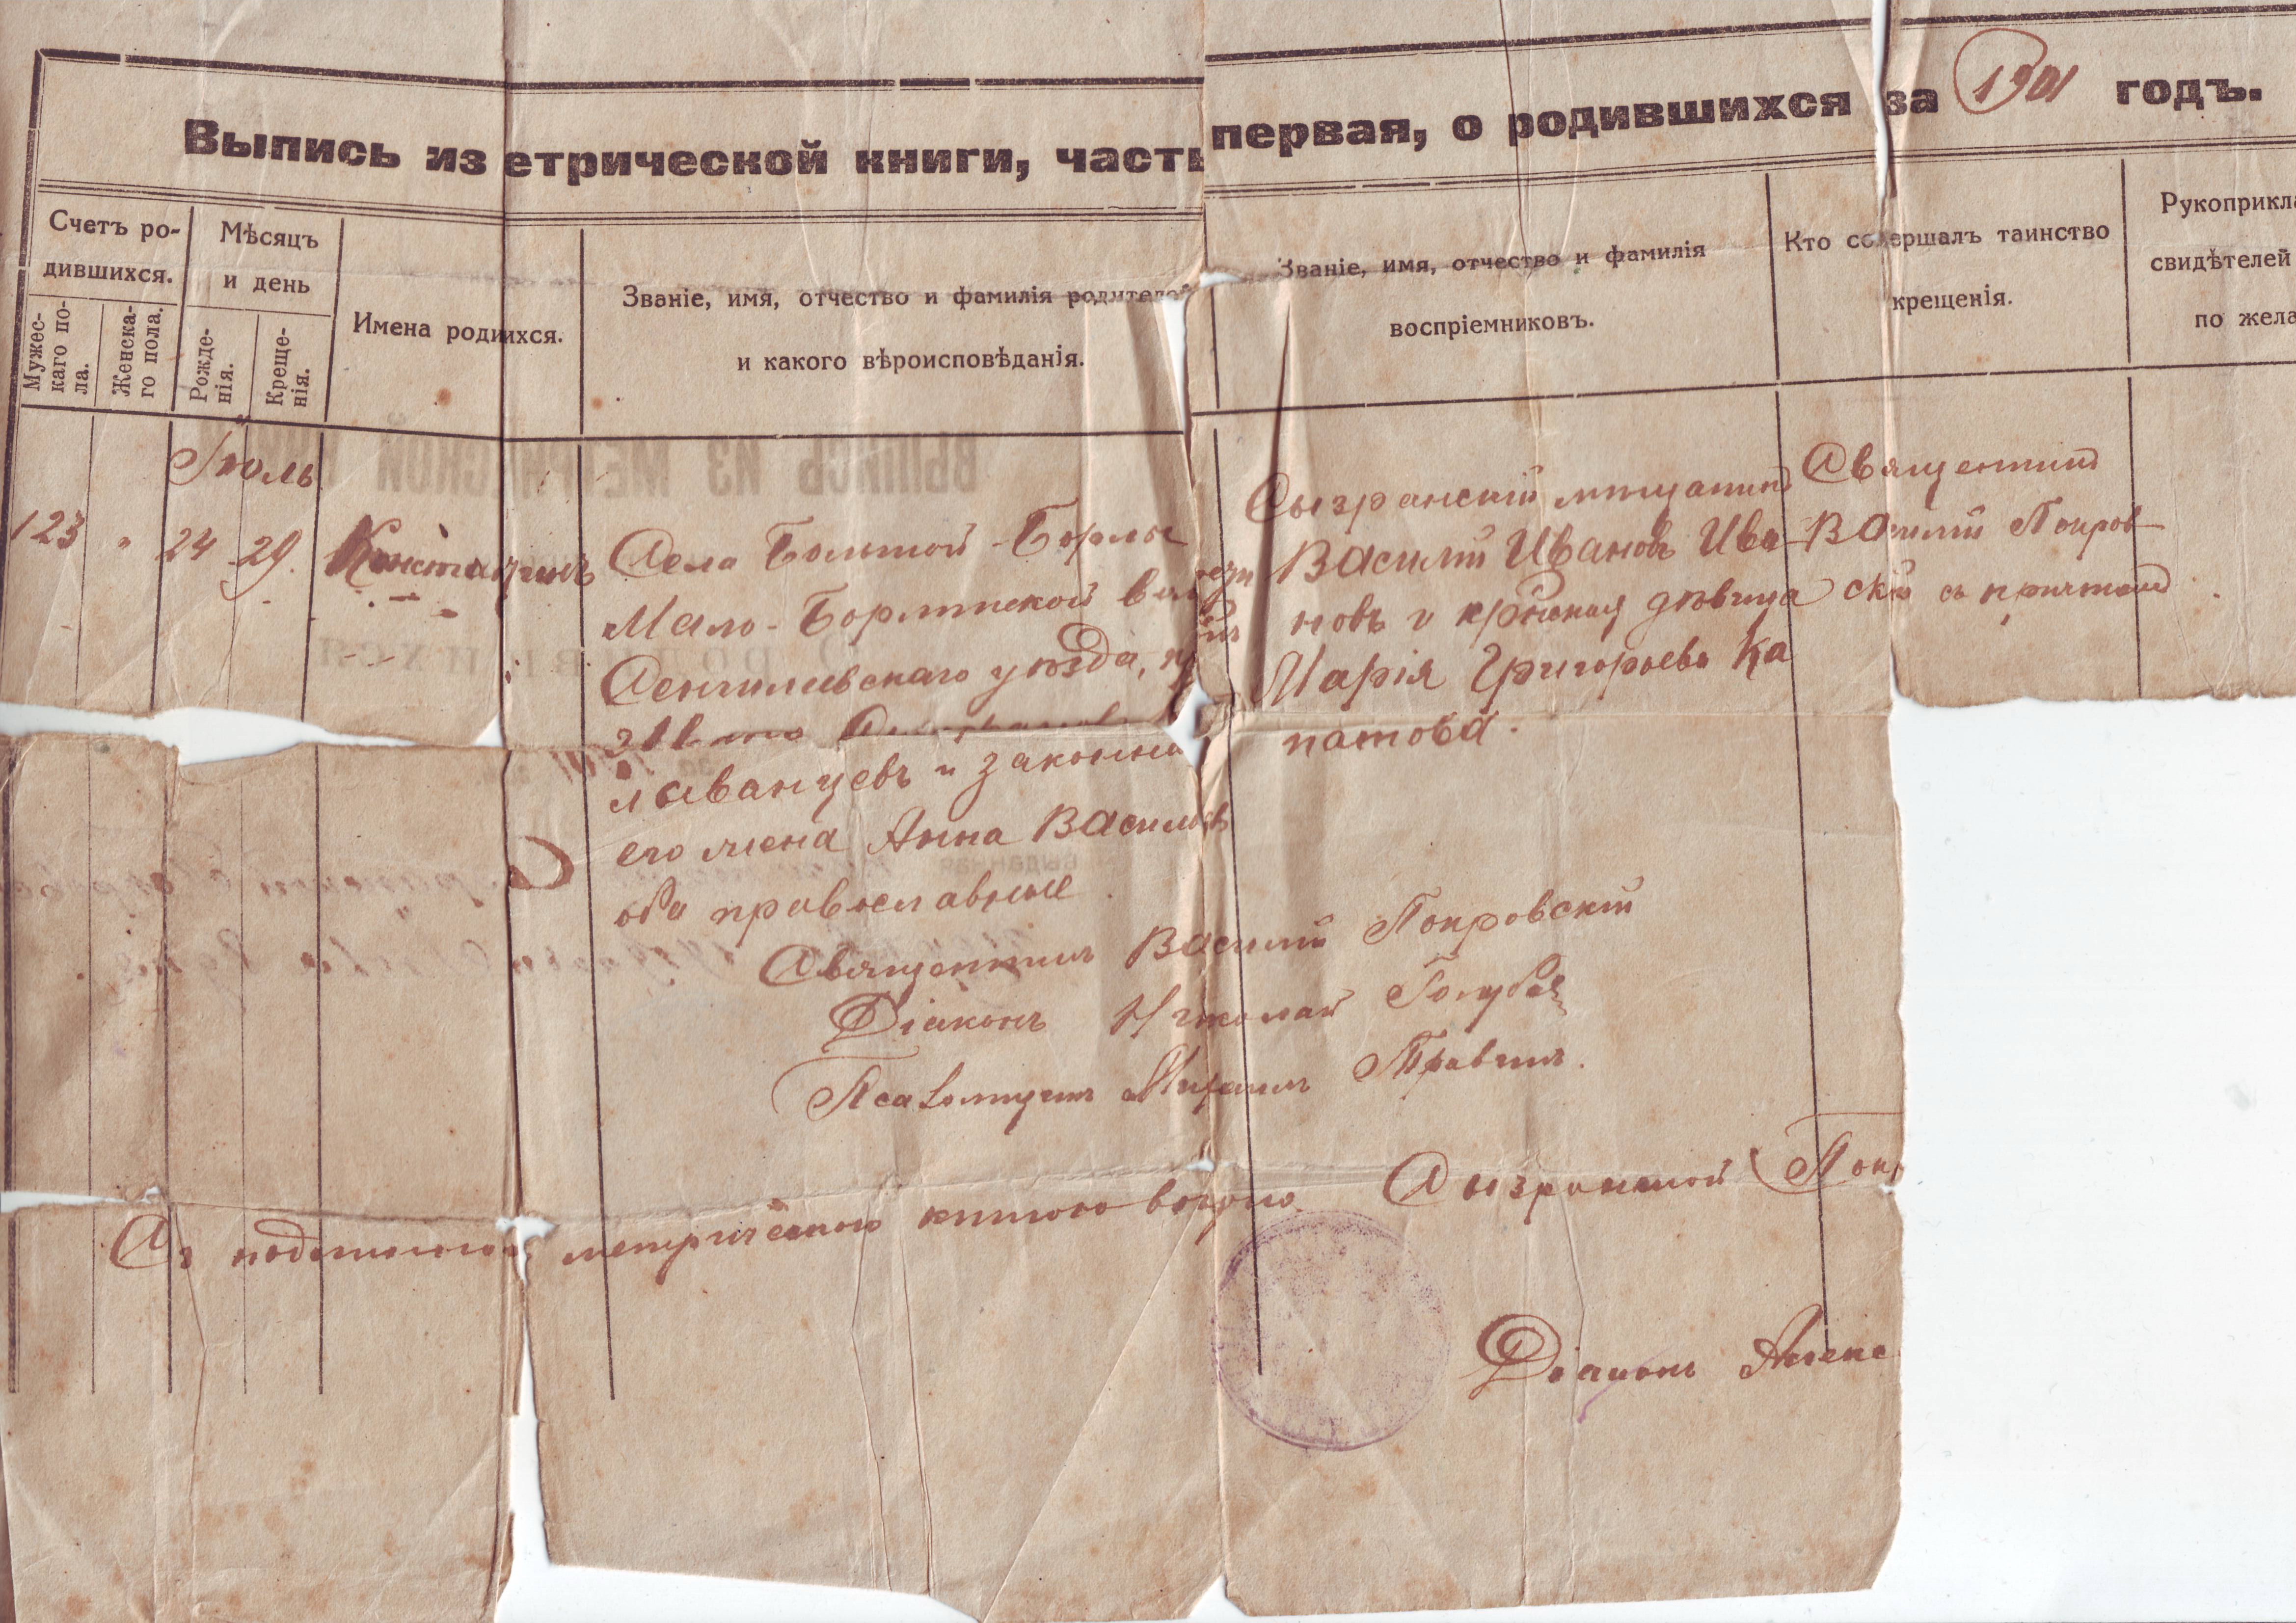 Выпись из етрической книги, часть первая, о родившихся за 1901 годъ.
Счетъ ро-
дившихся.
Мужес-
каго по-
ла.
Женска-
го пола.
Мѣсяцъ
и день
Рожде-
нія.
Креще-
нія.
Имена родихся.
Званіе, имя, отчество и фамилія родителей
и какого вѣроисповѣданія.
Званіе, имя, отчество и фамилія
воспріемниковъ.
Кто совершалъ таинство
крещенія.
Рукоприкла
свидѣтелей
по жела
Іюль
123 " 24 29. Константинъ
Села Большой-Борлы
Мало-Борлинской волости
Сенгилеевскаго уѣзда,
лыванцевъ и законная
его жена Анна Васильева
оба православные.
Сызранскій мѣщанинъ
Василій Ивановъ Ива-
новъ и крестьянская дѣвица
Марія Григорьева Ка
патова.
Священникъ
Василій Покров-
скій съ причтомъ.
Священникъ Василій Покровскій
Діаконъ Николай Голубев
Псаломщикъ Михаилъ Травинъ.
Съ подлинною метрическою книгою вѣрно. Сызранской Покр
Діаконъ Алекс